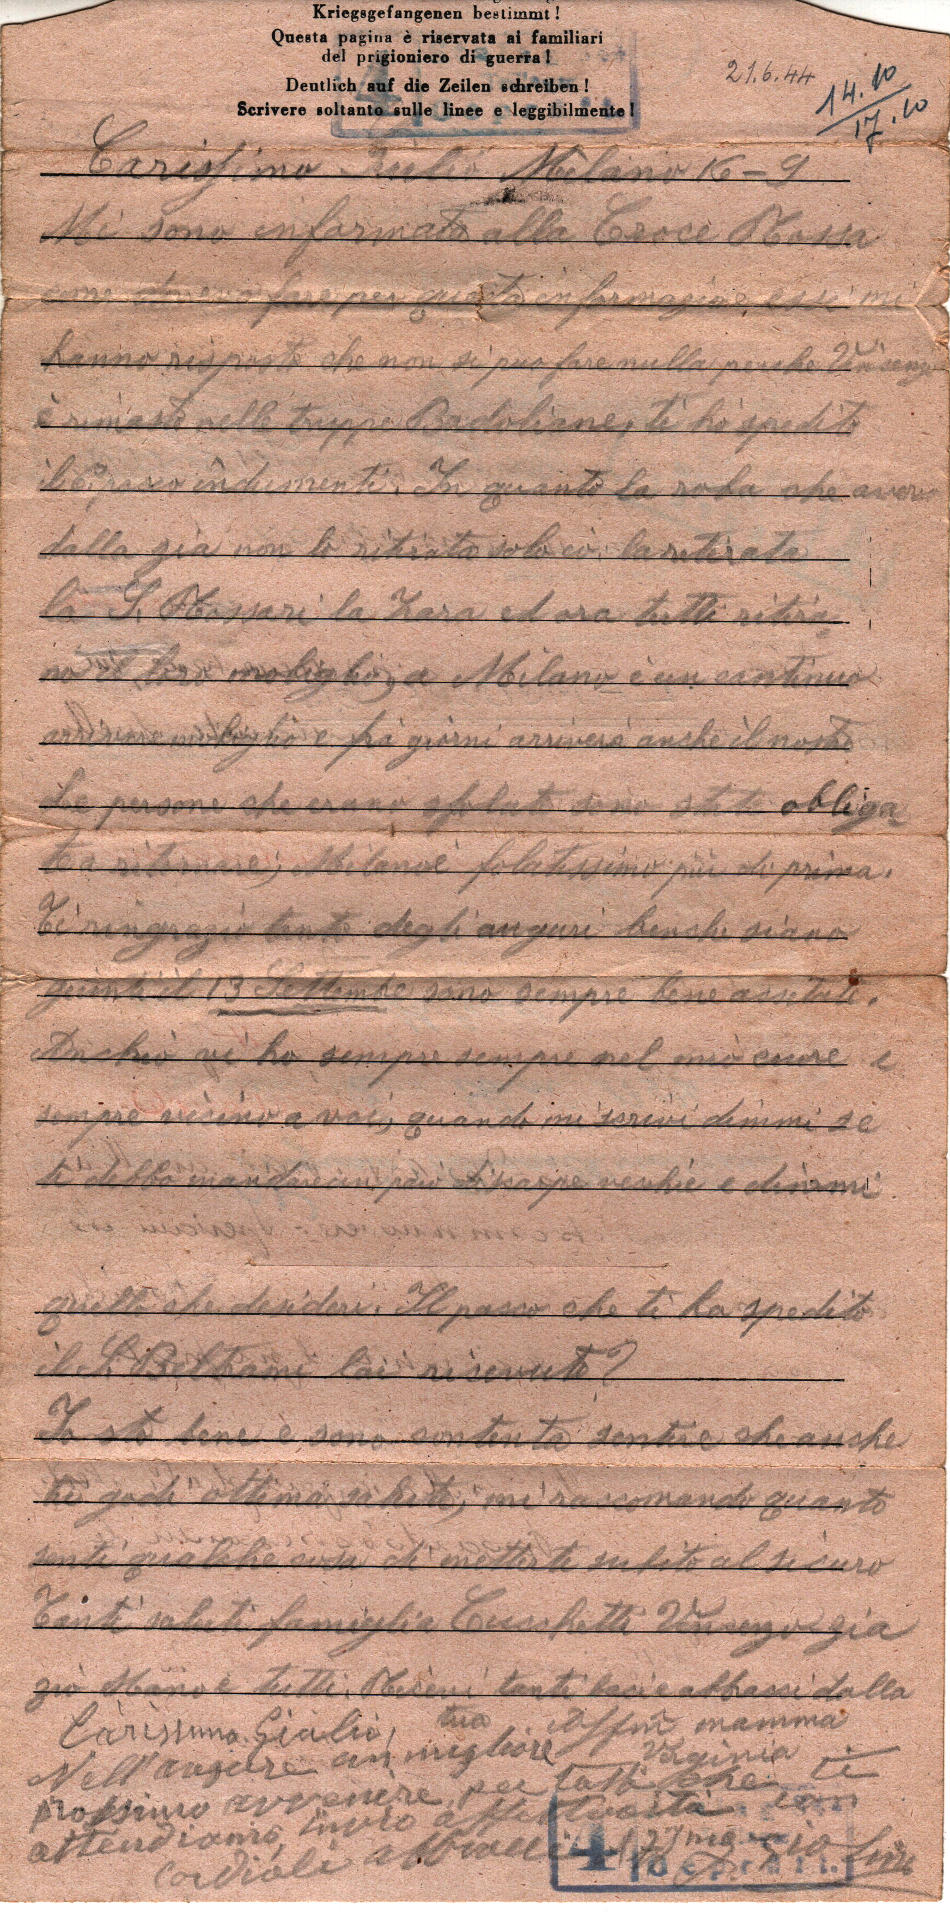 Kriegsgefangenen bestimmt!
Questa pagina è riservata ai familiari
del prigioniero di guerra!
Deutlich auf die Zeilen schreiben!
Scrivere soltanto sulle linee e leggibilmente!
21.6.44
14.10
17.10
4
Carissimo Milano 16-9
Mi sono informata alla Croce Rossa
come dovevo fare per questa informazione, essi mi
hanno risposto che non si puo fare nulla perche Vincenzo
è rimasto nelle truppe Badoliane, ti ho spedito
il pacco indumenti. In quanto la roba che avevo
dalla zia non lo ritirata solo la ritirata
la S. la Zara ed ora tutti ritira
no il loro mobiglio, a Milano è un continuo
arrivare mobiglio e fra giorni arriverà anche il nostro
Le persone che erano sfolate sono state obliga
te a ritornare, Milano è folatissimo piu di prima.
Ti ringrazio tanto degli auguri benche siano
giunti il 13 Settembre sono sempre bene accetate.
Anchio vi ho sempre sempre nel mio cuore e
sempre vicino a voi, quando mi scrivi dimmi se
ti debbo mandare un paio di scarpe vechie e dimmi
quello che desideri. Il pacco che ti ha spedito
il S. Beltrami lai ricevuto?
Io sto bene e sono contenta sentire che anche
te godi ottima salute, mi racomando quanto
senti qualche cosa di metterti subito al sicuro
Tanti saluti famiglia Vincenzo zia
zio e tutti. Ricevi tanti baci e abbracci dalla
tua Aff.ma mamma
Virginia
Carissimo Giulio,
Nell'augurio un migliore
prossimo avvenire per tutti che ti
attendiamo, invio affettuosità con
cordiali abbracci zio
4
Geprüft